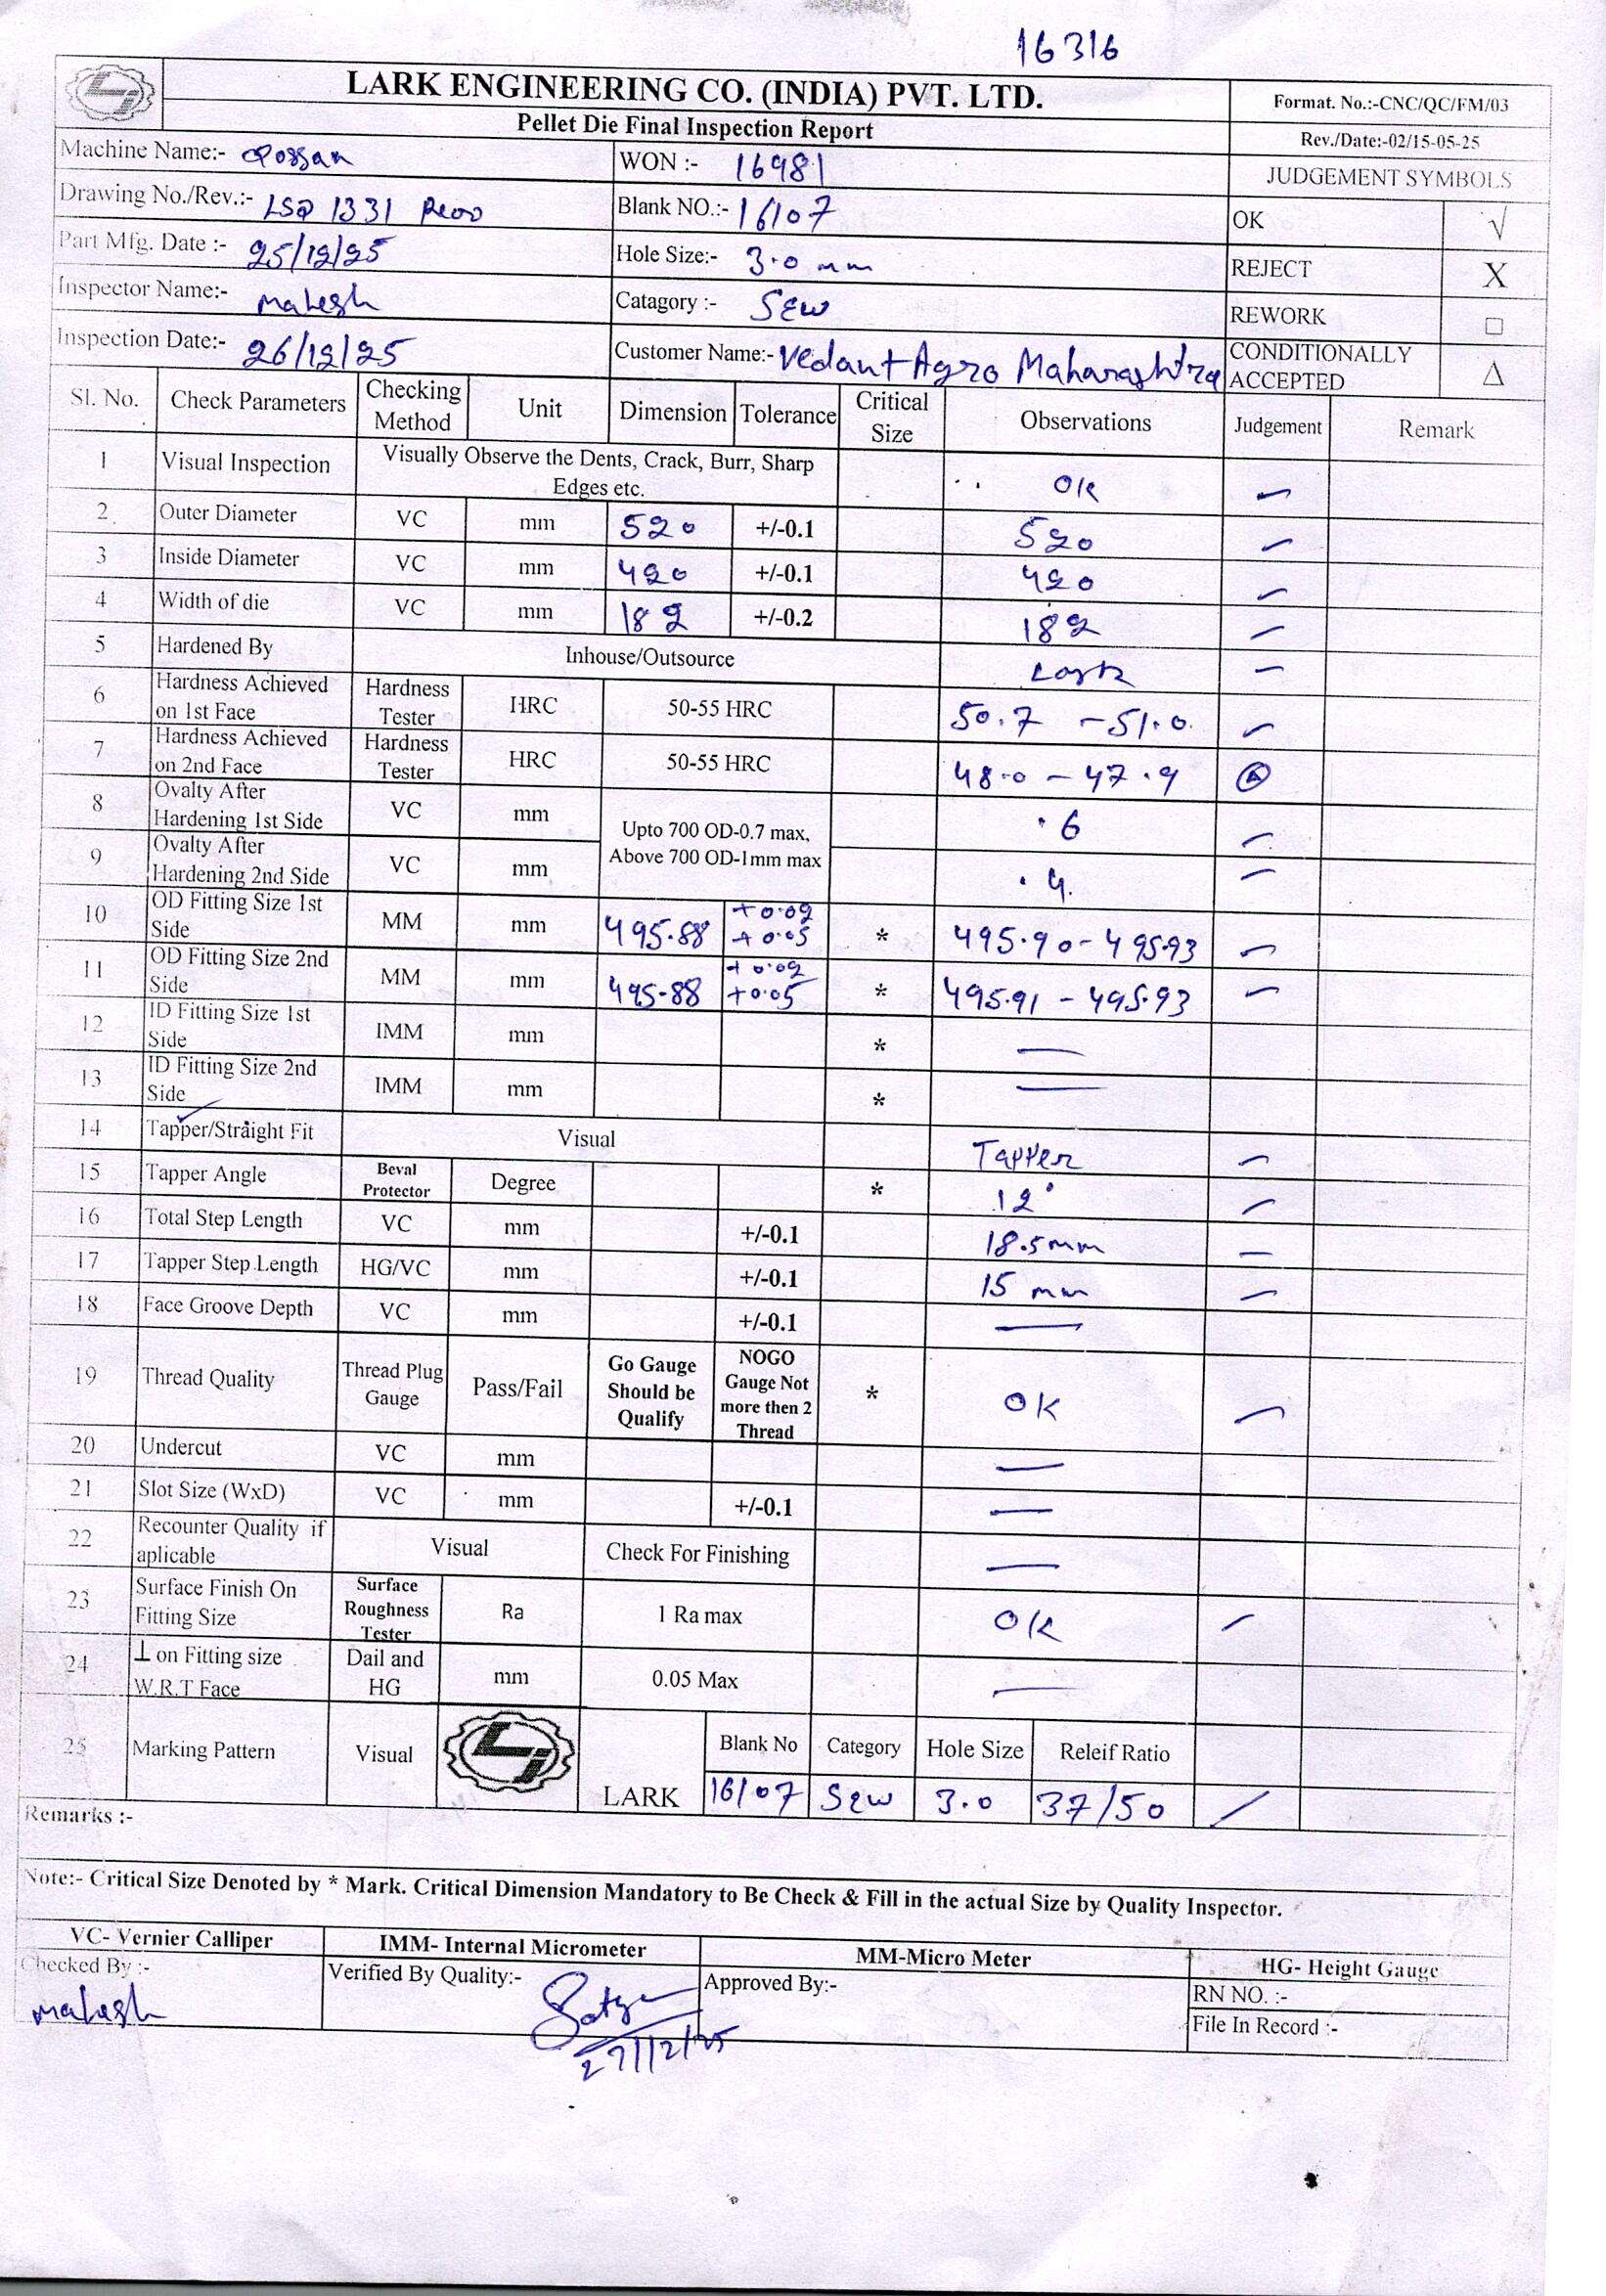 16316
LARK ENGINEERING CO. (INDIA) PVT. LTD.
Format. No.:-CNC/QC/FM/03
Pellet Die Final Inspection Report
Rev./Date:-02/15-05-25
Machine Name:-
WON :- 16981
JUDGEMENT SYMBOLS
Drawing No./Rev.:- 1331
Blank NO.:- 16/07
OK √
Part Mfg. Date :- 25/12/25
Hole Size:- 3.0 mm
REJECT X
Inspector Name:- Mahesh
Catagory :- SEW
REWORK □
Inspection Date:- 26/12/25
Customer Name:- Vedant Agro Maharashtra
CONDITIONALLY ACCEPTED Δ
Sl. No. Check Parameters Checking Method Unit Dimension Tolerance Critical Size Observations Judgement Remark
1 Visual Inspection Visually Observe the Dents, Crack, Burr, Sharp Edges etc. OK
2 Outer Diameter VC mm 520 +/-0.1 520
3 Inside Diameter VC mm 420 +/-0.1 420
4 Width of die VC mm 182 +/-0.2 182
5 Hardened By Inhouse/Outsource Lark
6 Hardness Achieved on 1st Face Hardness Tester HRC 50-55 HRC 50.7 - 51.0
7 Hardness Achieved on 2nd Face Hardness Tester HRC 50-55 HRC 48.0 - 47.9
8 Ovalty After Hardening 1st Side VC mm Upto 700 OD-0.7 max, Above 700 OD-1mm max .6
9 Ovalty After Hardening 2nd Side VC mm .4
10 OD Fitting Size 1st Side MM mm 495.88 +0.02 +0.05 * 495.90 - 495.93
11 OD Fitting Size 2nd Side MM mm 495.88 +0.02 +0.05 * 495.91 - 495.93
12 ID Fitting Size 1st Side IMM mm * —
13 ID Fitting Size 2nd Side IMM mm * —
14 Tapper/Straight Fit Visual Tapper
15 Tapper Angle Beval Protector Degree * 12°
16 Total Step Length VC mm +/-0.1 18.5mm
17 Tapper Step Length HG/VC mm +/-0.1 15 mm
18 Face Groove Depth VC mm +/-0.1 —
19 Thread Quality Thread Plug Gauge Pass/Fail Go Gauge Should be Qualify NOGO Gauge Not more then 2 Thread * OK
20 Undercut VC mm —
21 Slot Size (WxD) VC mm +/-0.1 —
22 Recounter Quality if aplicable Visual Check For Finishing —
23 Surface Finish On Fitting Size Surface Roughness Tester Ra 1 Ra max OK
24 ⊥ on Fitting size W.R.T Face Dail and HG mm 0.05 Max —
25 Marking Pattern Visual LARK Blank No Category Hole Size Releif Ratio
16/07 SEW 3.0 37/50
Remarks :-
Note:- Critical Size Denoted by * Mark. Critical Dimension Mandatory to Be Check & Fill in the actual Size by Quality Inspector.
VC- Vernier Calliper IMM- Internal Micrometer MM-Micro Meter HG- Height Gauge
Checked By :- Mahesh
Verified By Quality:- 27/12/25
Approved By:-
RN NO. :-
File In Record :-